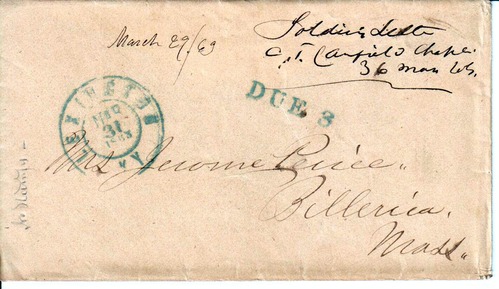 March 29/63
Soldiers Letter
C. T. Canfield Chapl.
36 Mass Vols.
DUE 3
LEXINGTON
MAR
31
1863
KY
Mrs. Jerome
Billerica.
Mass.